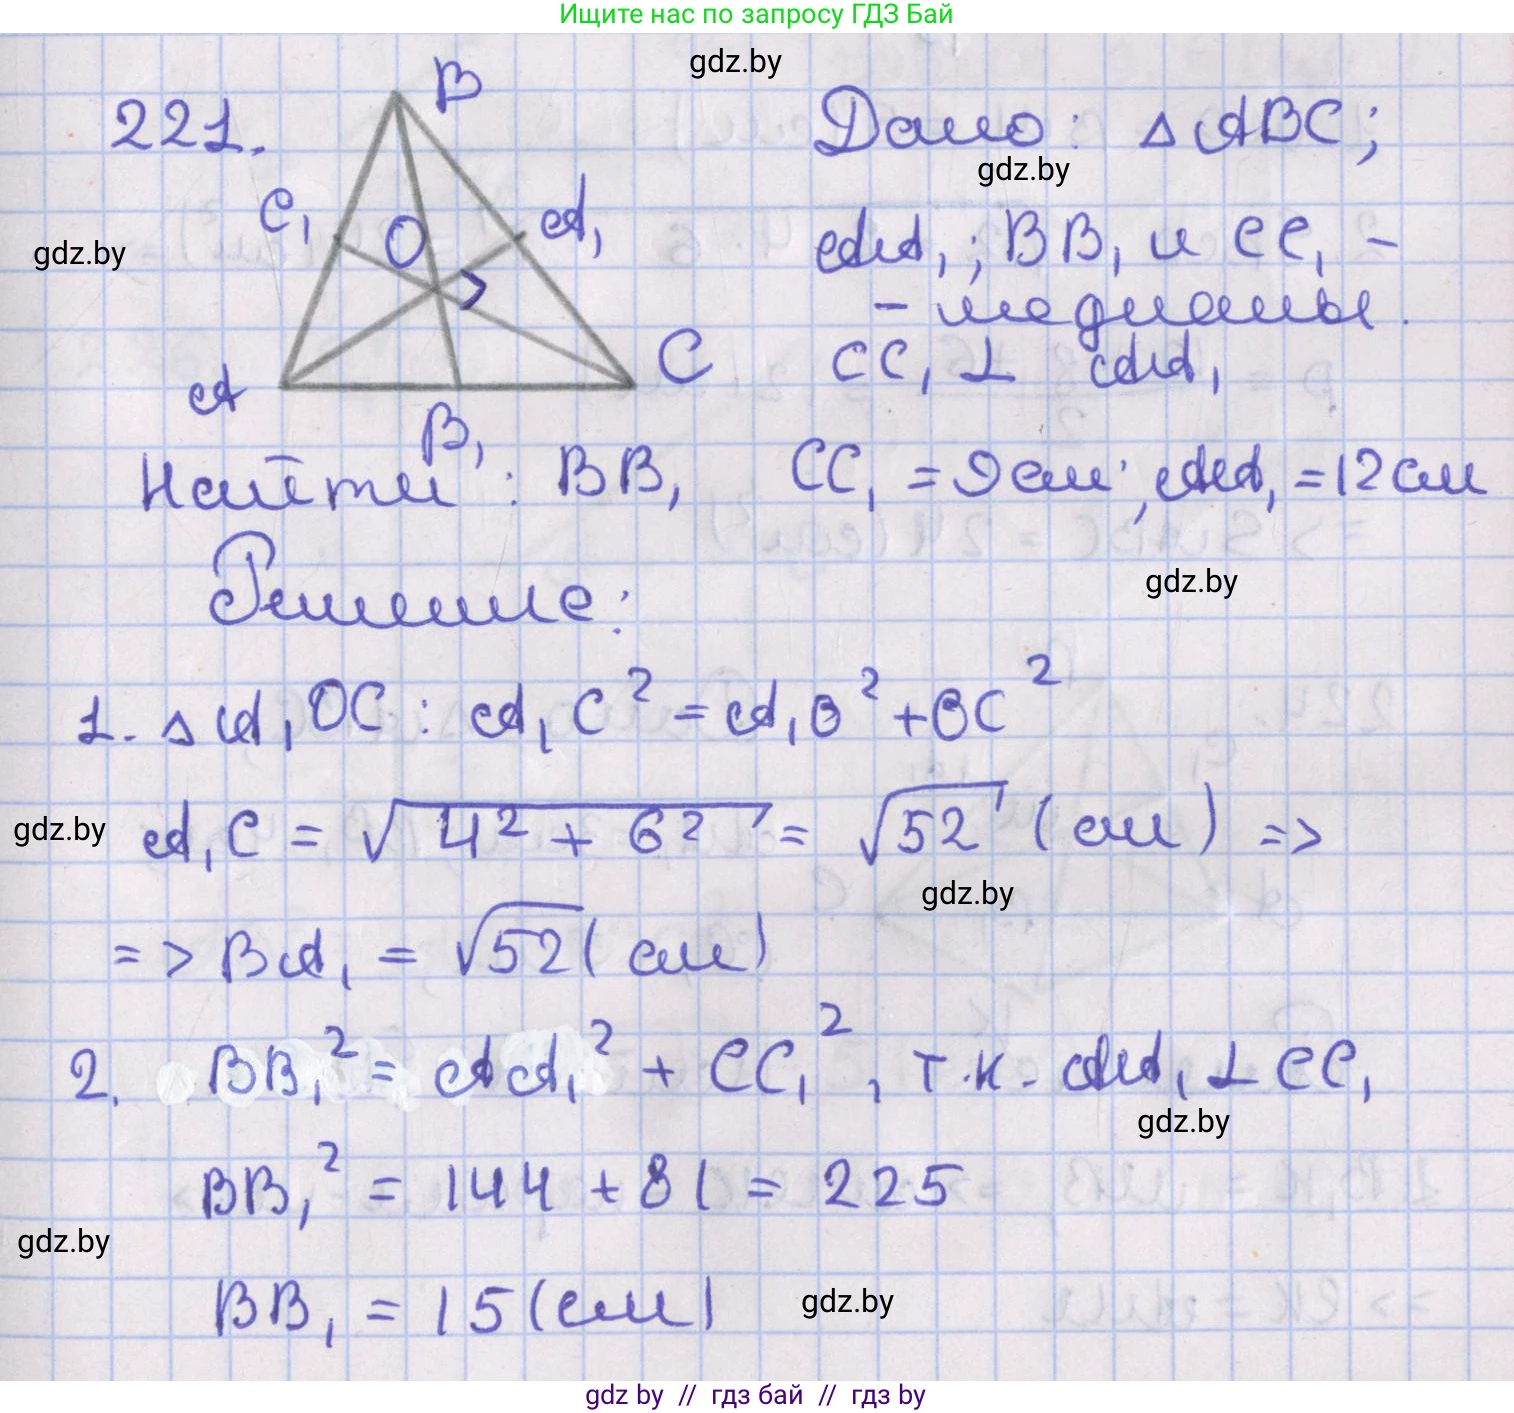 Ищите нас по запросу ГДЗ Бай
gdz.by
221.
B
Дано: △ ABC;
gdz.by
C₁
O
A₁
gdz.by
AA₁; BB₁ и CC₁ –
– медианы.
A
C
CC₁ ⊥ AA₁
B₁
Найти: BB₁ CC₁ = 9 см; AA₁ = 12 см
Решение:
gdz.by
1. △ A₁OC: A₁C² = A₁O² + OC²
gdz.by
A₁C = √4² + 6² = √52 (см) =>
gdz.by
=> BA₁ = √52 (см)
2. BB₁² = AA₁² + CC₁², т.к. AA₁ ⊥ CC₁
gdz.by
BB₁² = 144 + 81 = 225
gdz.by
BB₁ = 15 (см)
gdz.by
gdz by // гдз бай // гдз by